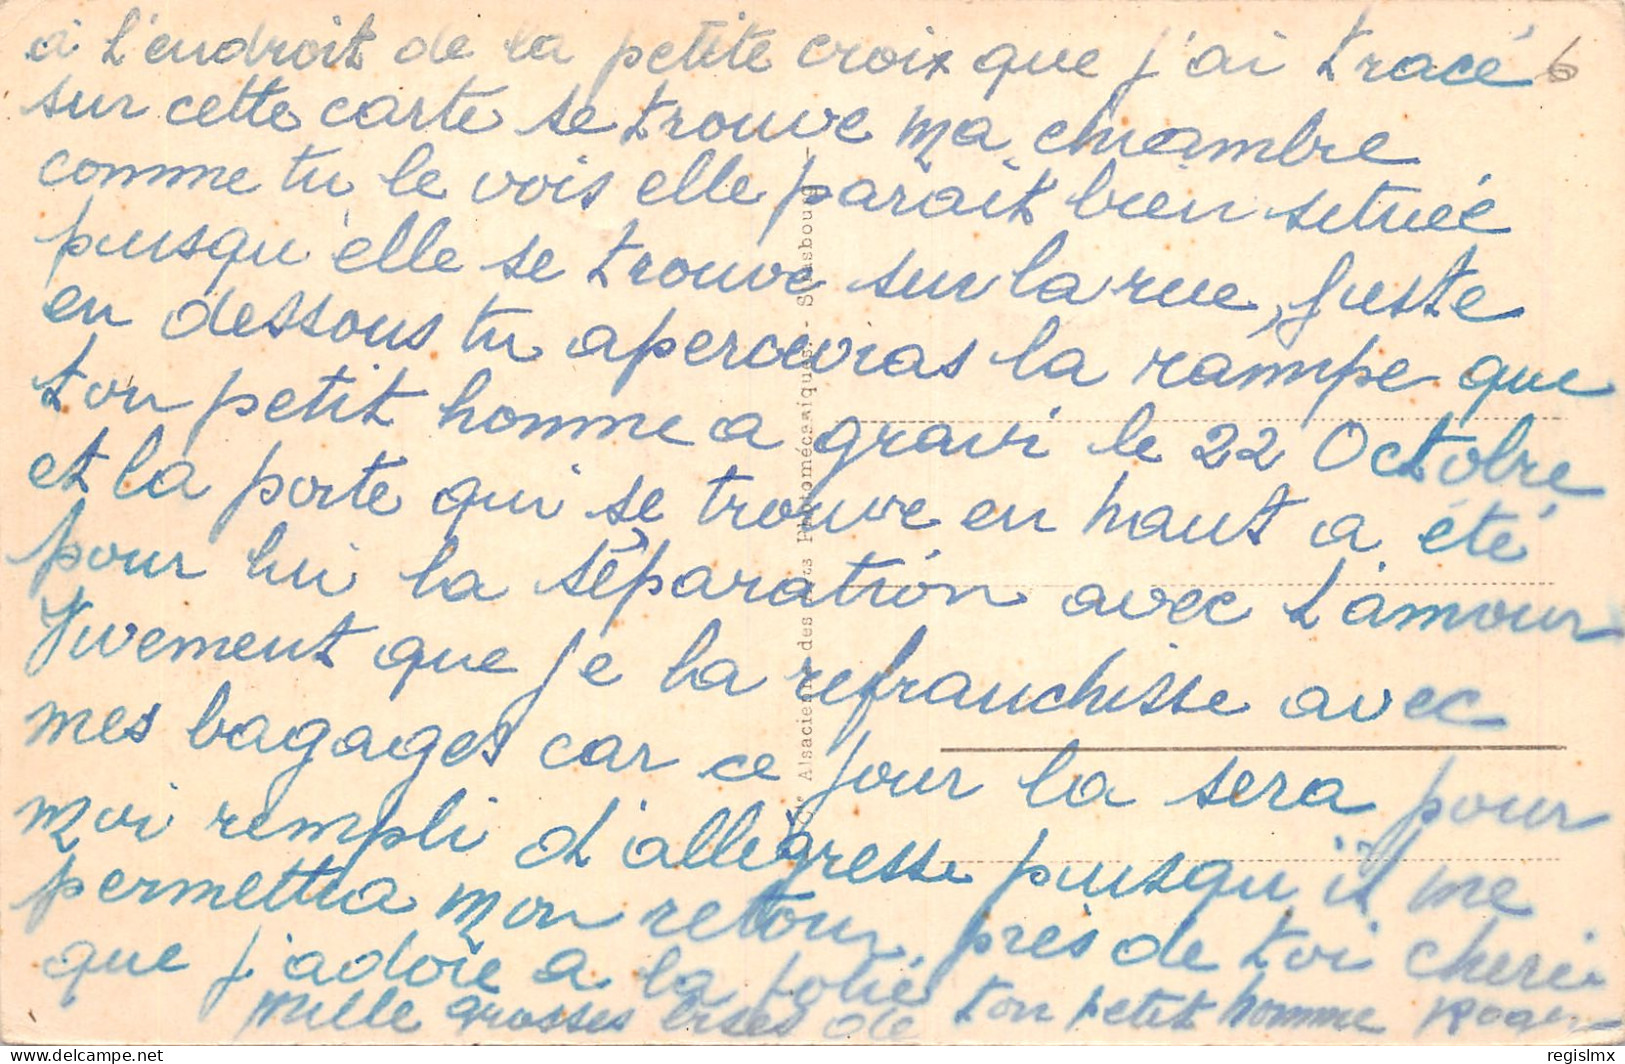 à l'endroit de la petite croix que j'ai tracé 6
sur cette carte se trouve ma chambre
comme tu le vois elle paraît bien située
puisqu'elle se trouve sur la rue, juste
en dessous tu apercevras la rampe que
ton petit homme a gravi le 22 Octobre
et la porte qui se trouve en haut a été
pour lui la séparation avec l'amour
Vivement que je la refranchisse avec
mes bagages car ce jour la sera pour
moi rempli d'allègresse puisqu'il me
permettra mon retour près de toi cherie
que j'adore a la folie
Mille grosses bises de ton petit homme Roger
Alsacienne des Arts Photomécaniques - Strasbourg
delcampe.net
regislmx